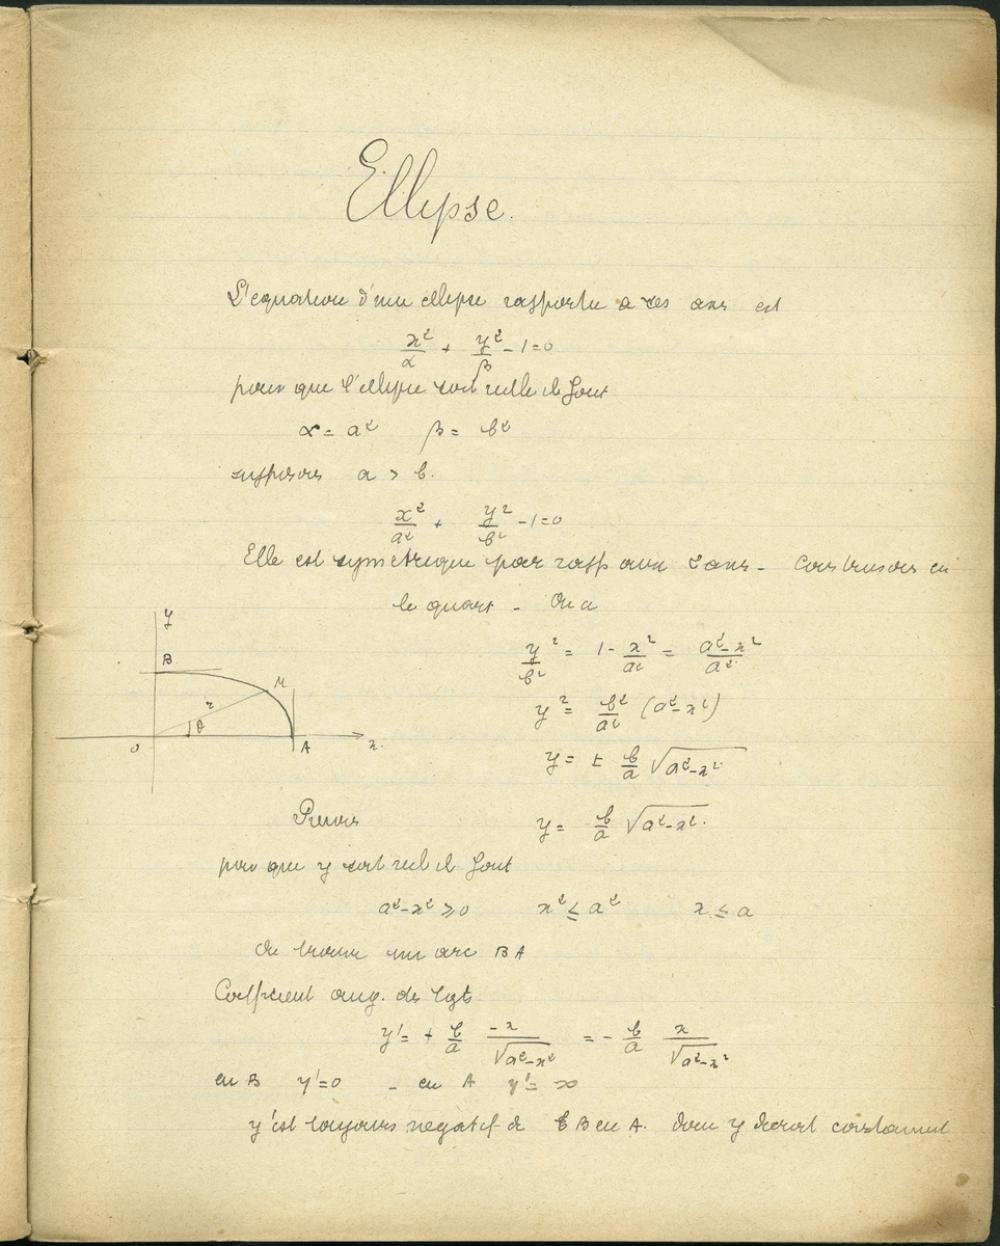 Ellipse.
L'equation d'une ellipse rapportée a ses axes est
x²/α + y²/β - 1 = 0
pour que l'ellipse soit reelle il faut
α = a² β = b²
supposons a > b.
x²/a² + y²/b² - 1 = 0
Elle est symetrique par rapp aux 2 axes - Construisons en
le quart - On a
y²/b² = 1 - x²/a² = (a²-x²)/a²
y² = b²/a² (a²-x²)
y = ± b/a √(a²-x²)
y
B
M
r
θ
O
A
x
Prenons y = b/a √(a²-x²).
pour que y soit reel il faut
a²-x² ≥ 0 x² ≤ a² x ≤ a
On trouve un arc BA
Coefficient ang. des tgts
y' = + b/a -x/√(a²-x²) = - b/a x/√(a²-x²)
en B y'=0 - en A y'= ∞
y' est toujours negatif de B en A. donc y decroit constament